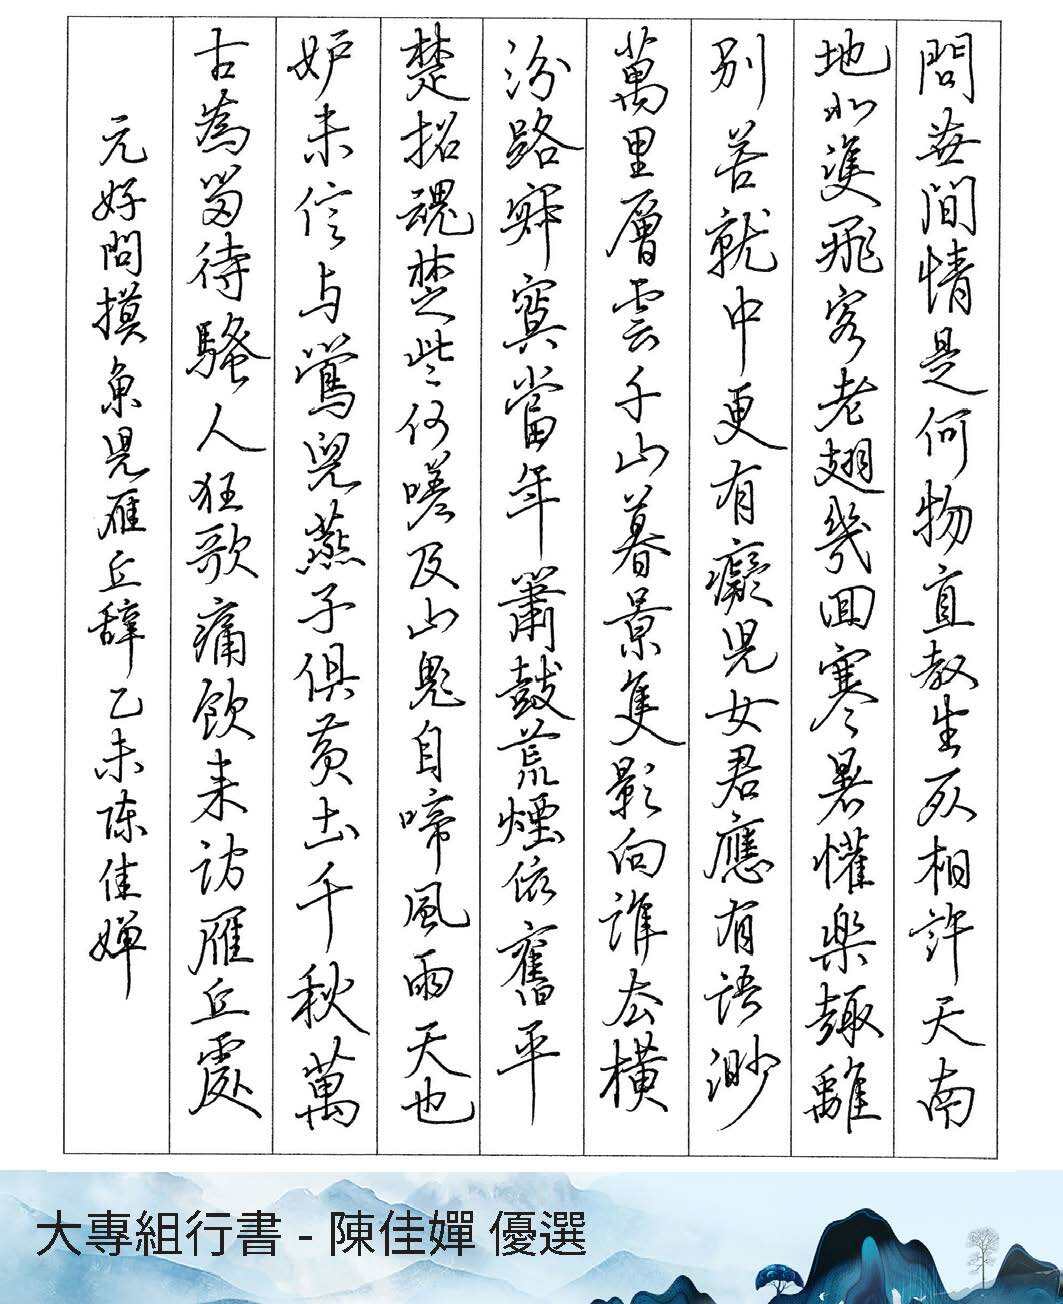 問世間情是何物直教生死相許天南
地北雙飛客老翅幾回寒暑懽樂趣離
別苦就中更有癡兒女君應有語渺
萬里層雲千山暮景隻影向誰去橫
汾路寂寞當年簫鼓荒煙依舊平
楚招魂楚些何嗟及山鬼自啼風雨天也
妒未信与鶯兒燕子俱黃土千秋萬
古為留待騷人狂歌痛飲来訪雁丘處
元好問摸魚兒雁丘辭乙未陳佳嬋
大專組行書 - 陳佳嬋 優選